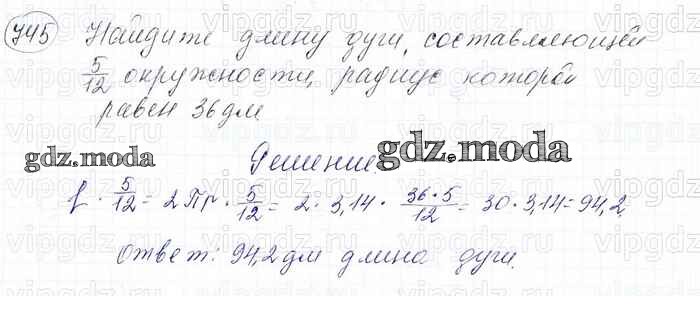 745 Найдите длину дуги, составляющей
5/12 окружности, радиус которой
равен 36 дм
gdz.moda gdz.moda
Решение.
l · 5/12 = 2Пr · 5/12 = 2 · 3,14 · 36·5/12 = 30 · 3,14 = 94,2
Ответ: 94,2 дм длина дуги.